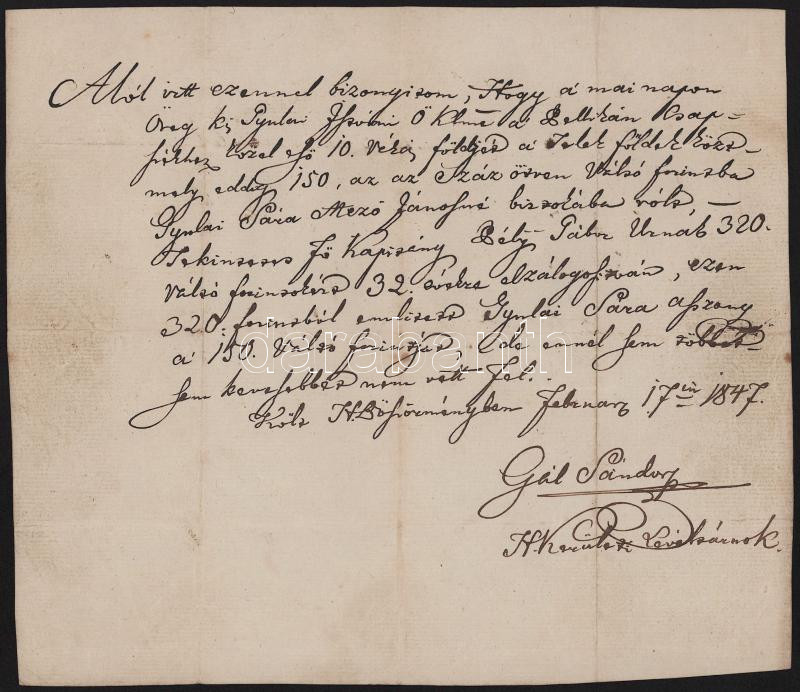 Alól irtt ezennel bizonyitom, Hogy á mai napon
Öreg kis Gyulai István Ő Klme a Bellikán Csap-
székhez közel eső 10. Vékás földjét á Telek földek közt -
mely eddig 150, az az Száz ötven Váltó forintba
Gyulai Sára Mező Jánosné birtokába vólt, -
Tekintetes Fő Kapitány Bély Gábor Urnak 320.
Váltó forintokért 32. évekre elzálogosítván, ezen
320. forintból emlitett Gyulai Sára aszszony
á 150. Váltó forintját, de ennél sem többet
sem kevesebbet nem vett fel.
Költ H.Böszörményben Februar 17én 1847.
Gál Sándor
H.Kerületi Levéltárnok.
darabanth